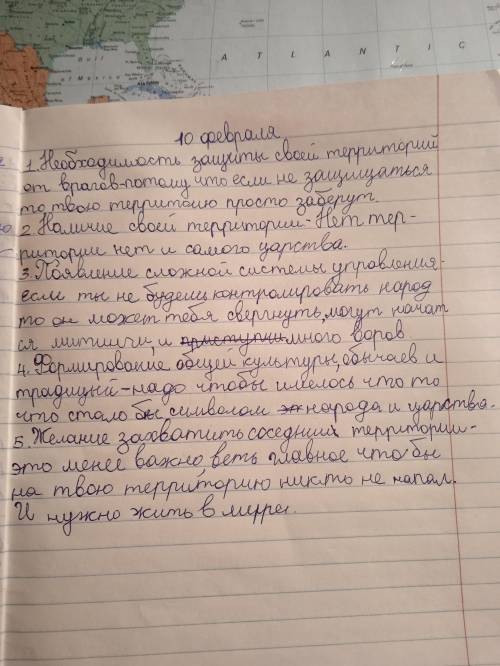 ATLANTIC
Gulf
of Mexico
10 февраля
1. Необходимость защиты своей территорий
от врагов-потому что если не защищаться
то твою территорию просто заберут.
2. Наличие своей территории-Нет тер-
ритории нет и самого царства.
3. Появление сложной системы управления-
если ты не будешь контролировать народ
то он может тебя свергнуть, могут начат
ся митинги, и много воров
4. Формирование общей культуры, обычаев и
традиций-надо чтобы имелось что то
что стало бы символом народа и царства.
5. Желание захватить соседних территории-
это менее важно веть главное что бы
на твою территорию никто не напал.
И нужно жить в мирре.